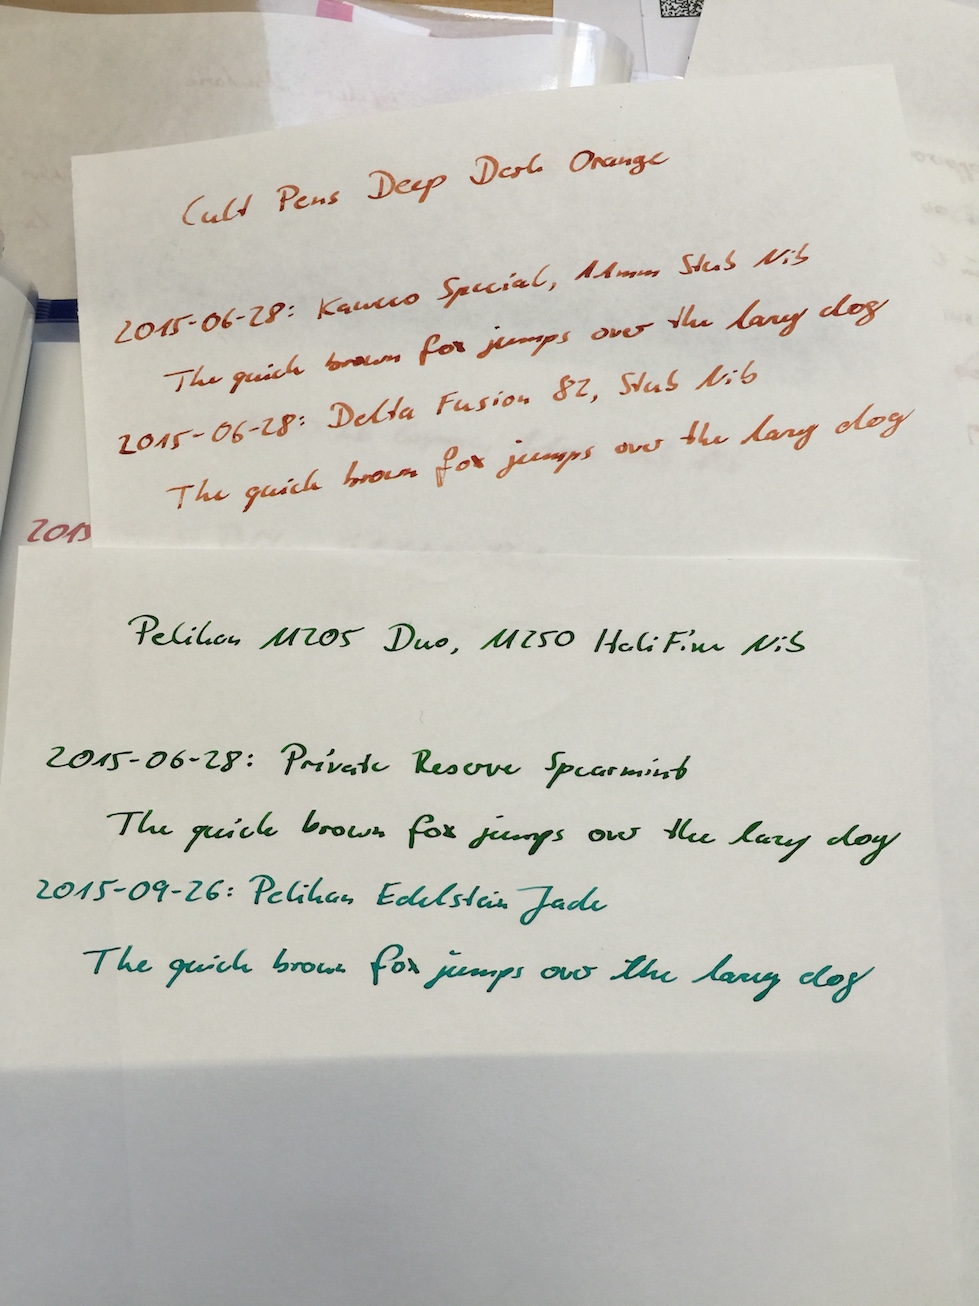 Cult Pens Deep Dark Orange
2015-06-28: Kaweco Special, 11mm Stub Nib
The quick brown fox jumps over the lazy dog
2015-06-28: Delta Fusion 82, Stub Nib
The quick brown fox jumps over the lazy dog
2015
Pelikan M205 Duo, M250 Italic Fine Nib
2015-06-28: Private Reserve Spearmint
The quick brown fox jumps over the lazy dog
2015-09-26: Pelikan Edelstein Jade
The quick brown fox jumps over the lazy dog